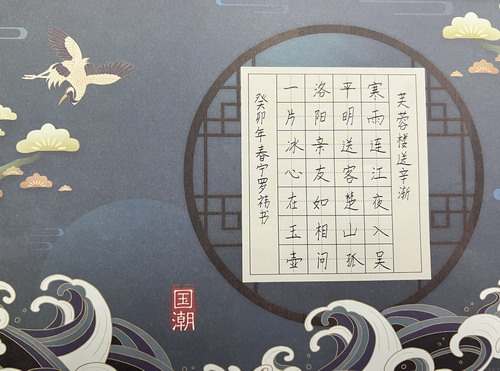 芙蓉楼送辛渐
寒雨连江夜入吴
平明送客楚山孤
洛阳亲友如相问
一片冰心在玉壶
癸卯年春宁罗祎书
国潮